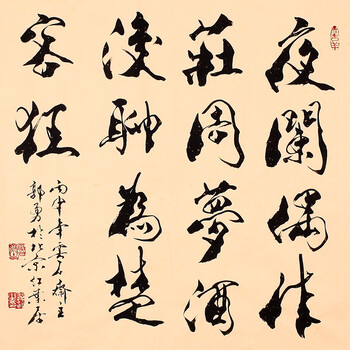 夜闌偶作
莊周夢酒
後聊為楚
客狂
丙申年雲石齋主
郭勇於北京